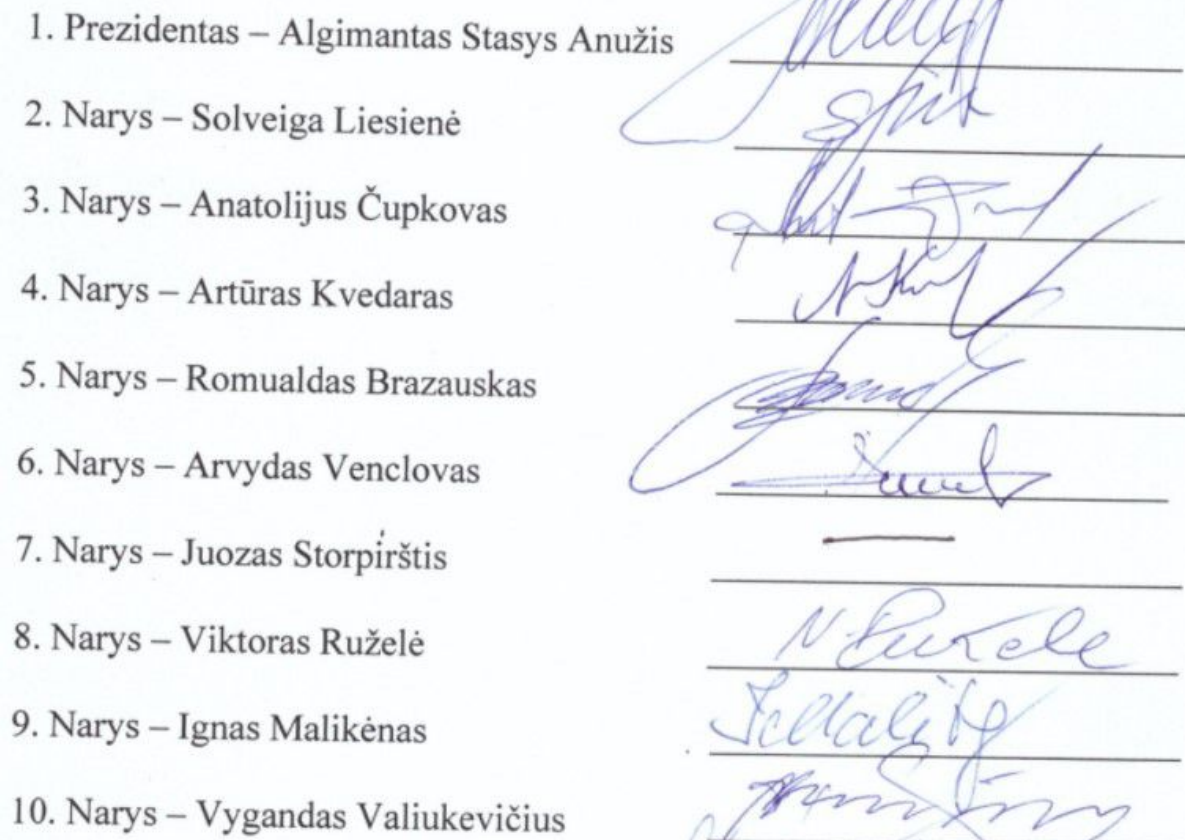 1. Prezidentas – Algimantas Stasys Anužis
2. Narys – Solveiga Liesienė
3. Narys – Anatolijus Čupkovas
4. Narys – Artūras Kvedaras
5. Narys – Romualdas Brazauskas
6. Narys – Arvydas Venclovas
7. Narys – Juozas Storpirštis
8. Narys – Viktoras Ruželė
9. Narys – Ignas Malikėnas
10. Narys – Vygandas Valiukevičius